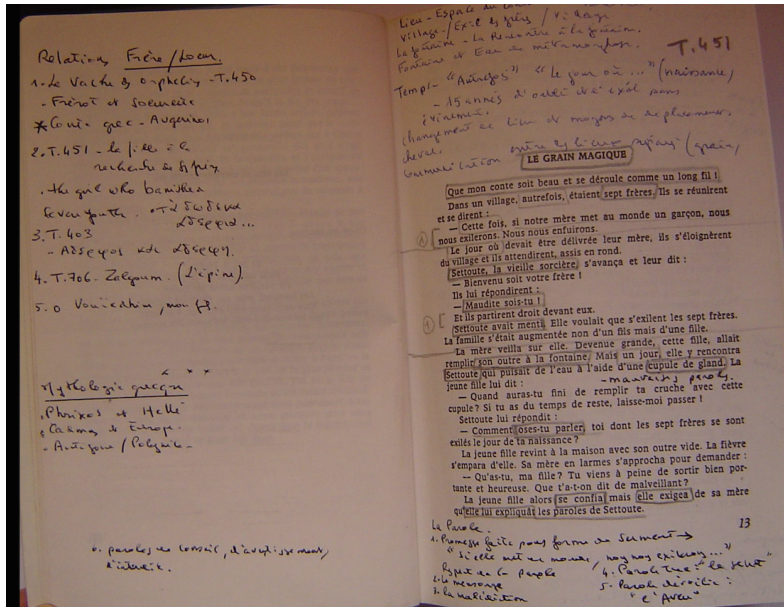 Relations Frère/Soeur.
1. La Vache des orphelins - T.450
- Frérot et Soeurette
* Conte grec - Augerinos
2. T.451 - la fille à la
recherche de ses frères
. the girl who banished
seven youth. Τα δώδεκα
αδέρφια...
3. T.403
- Αδερφός και αδερφή.
4. T.706 - Zalgoum. (L'épine).
5. o
Mythologie grecque
. Phrixos et Hellé
. Cadmos & Europe.
- Antigone / Polynice
6. paroles de conseil, d'avertissement,
Village / Exil des frères / Village
La fontaine - La Rencontre à la fontaine.
Fontaine et Eau de métamorphose.
T.451
Temps - "Autrefois" "Le jour où..." (naissance,
- 15 années d'oubli et d'exil sans
événement.
changement de lieu et moyens de déplacement.
cheval.
Communication entre les lieux (grain,
LE GRAIN MAGIQUE
Que mon conte soit beau et se déroule comme un long fil !
Dans un village, autrefois, étaient sept frères. Ils se réunirent
et se dirent :
— Cette fois, si notre mère met au monde un garçon, nous
nous exilerons. Nous nous enfuirons.
Le jour où devait être délivrée leur mère, ils s'éloignèrent
du village et ils attendirent, assis en rond.
Settoute, la vieille sorcière, s'avança et leur dit :
— Bienvenu soit votre frère !
Ils lui répondirent :
— Maudite sois-tu !
Et ils partirent droit devant eux.
Settoute avait menti. Elle voulait que s'exilent les sept frères.
La famille s'était augmentée non d'un fils mais d'une fille.
La mère veilla sur elle. Devenue grande, cette fille, allait
remplir son outre à la fontaine. Mais un jour, elle y rencontra
Settoute qui puisait de l'eau à l'aide d'une cupule de gland. La
jeune fille lui dit :
- mauvaises paroles.
— Quand auras-tu fini de remplir ta cruche avec cette
cupule ? Si tu as du temps de reste, laisse-moi passer !
Settoute lui répondit :
— Comment oses-tu parler, toi dont les sept frères se sont
exilés le jour de ta naissance ?
La jeune fille revint à la maison avec son outre vide. La fièvre
s'empara d'elle. Sa mère en larmes s'approcha pour demander :
— Qu'as-tu, ma fille ? Tu viens à peine de sortir bien por-
tante et heureuse. Que t'a-t-on dit de malveillant ?
La jeune fille alors se confia mais elle exigea de sa mère
qu'elle lui expliquât les paroles de Settoute.
13
La Parole.
1. Promesse faite sous forme de Serment →
"Si elle met au monde, nous nous exilerons..."
Respect de la parole
2. Le mensonge
3. La malédiction
5. Parole dévoilée :
"L'Aveu"